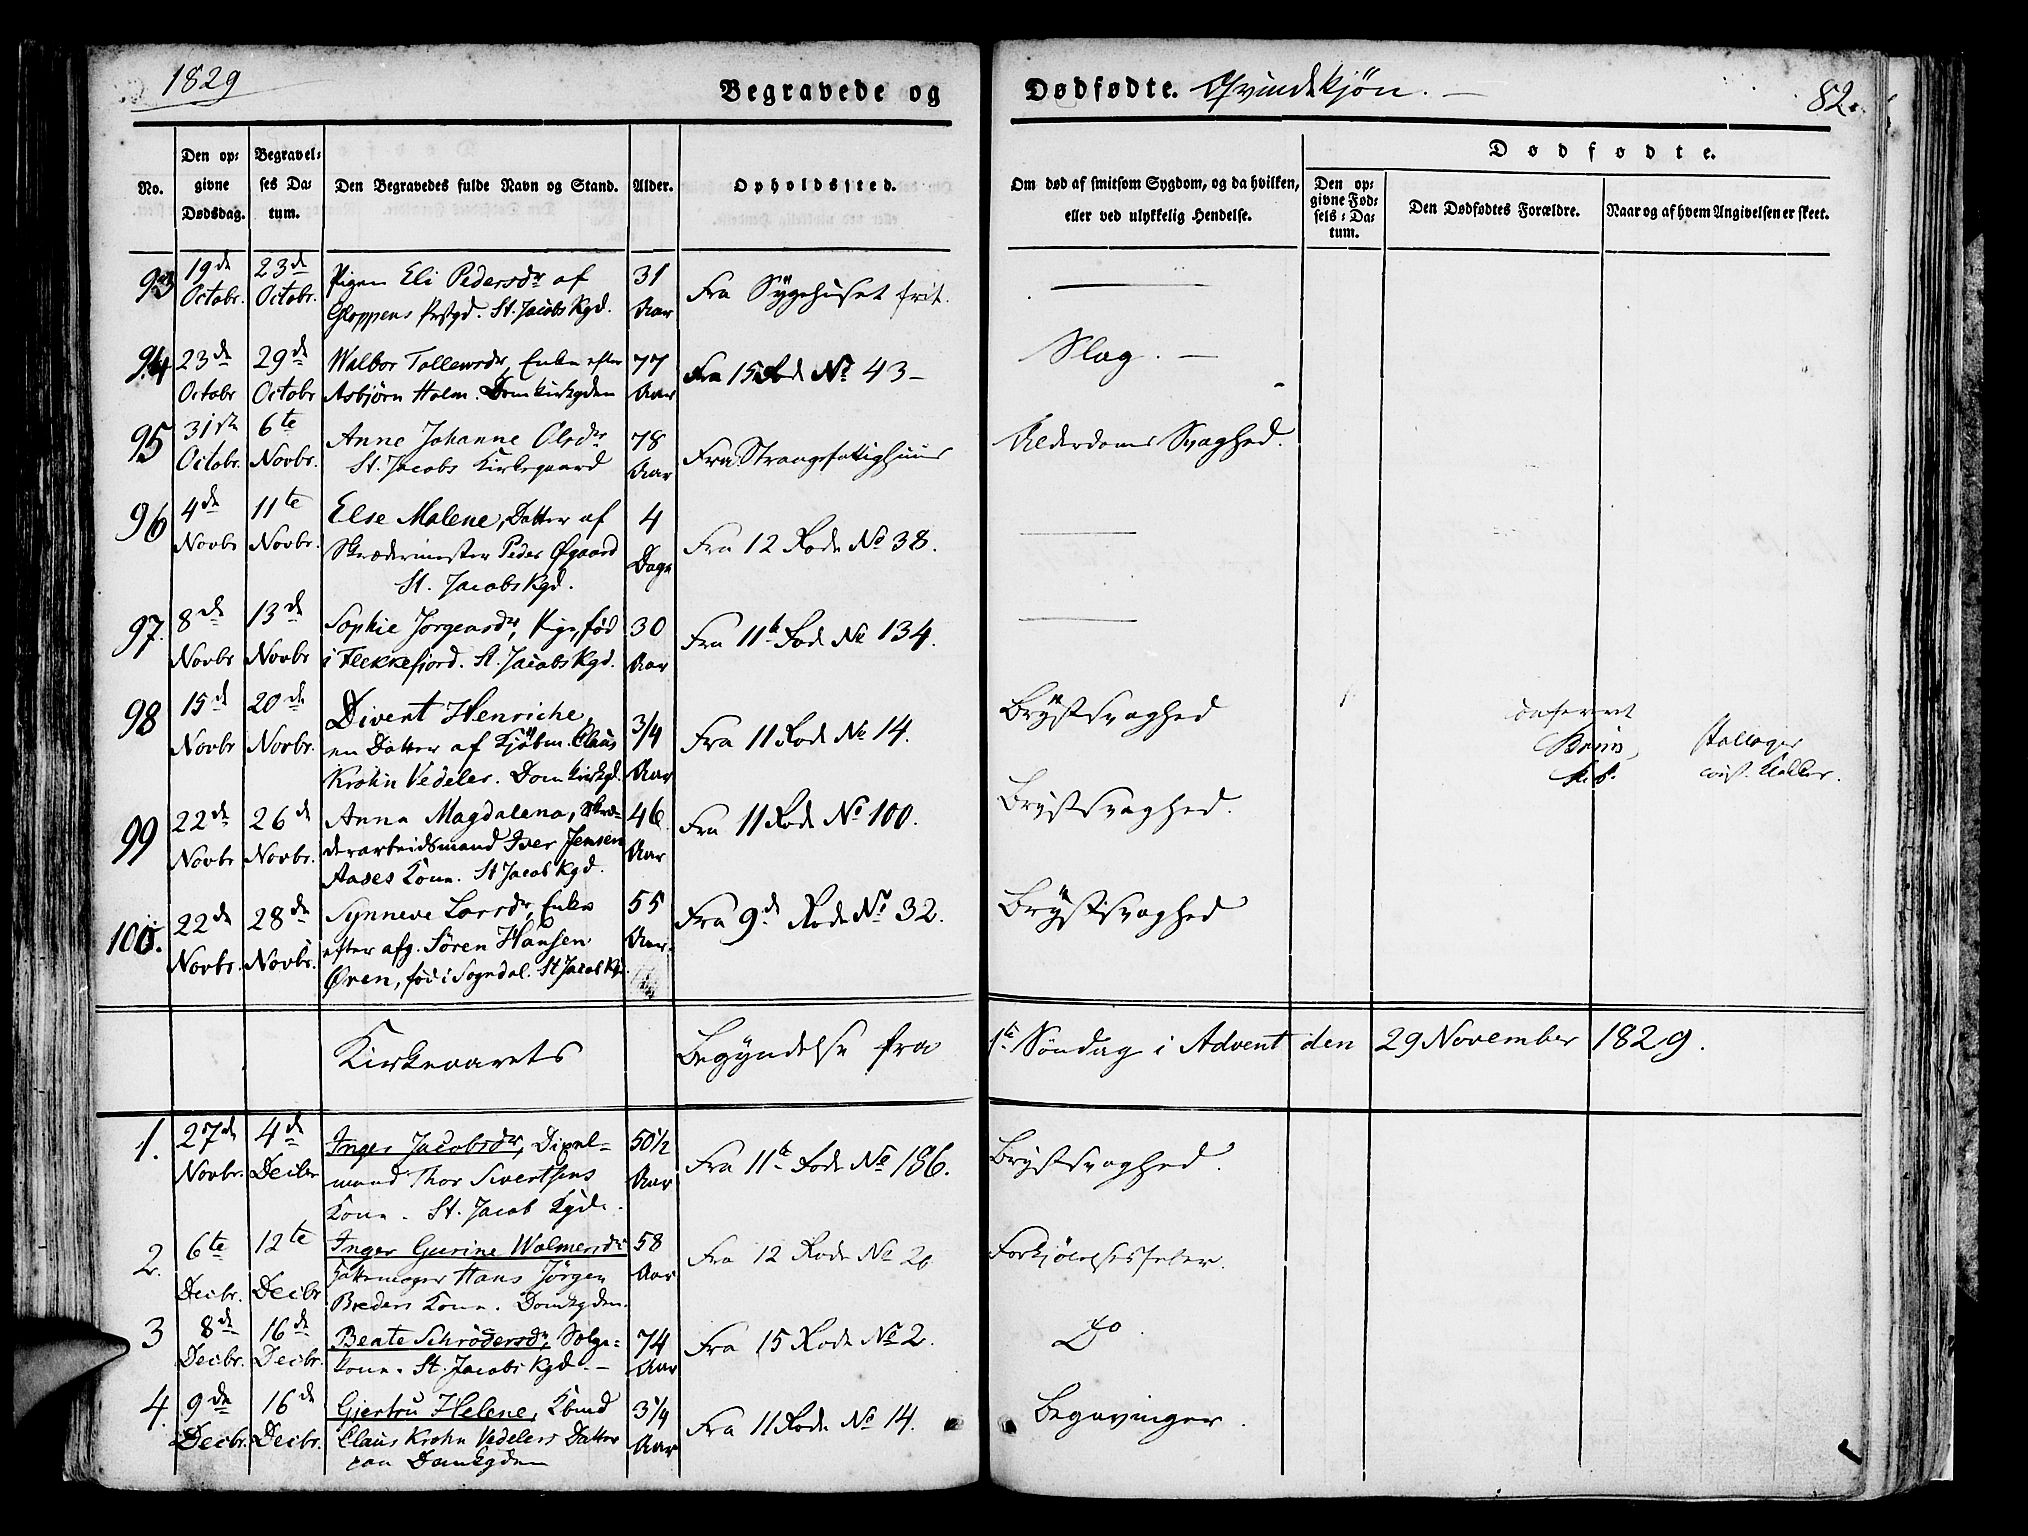 1829
Begravede og
Dødfødte. Qvindekjøn. —
82.
No.
Den op-
givne
Dødsdag.
Begravel-
ses Da-
tum.
Den Begravedes fulde Navn og Stand.
Alder.
Opholdssted.
Om død af smitsom Sygdom, og da hvilken,
eller ved ulykkelig Hendelse.
Dødfødte.
Den op-
givne Fød-
sels-Da-
tum.
Den Dødfødtes Forældre.
Naar og af hvem Angivelsen er skeet.
93 19de Octobr. 23de Octobr.
Pigen Eli Pedersdr af
Gloppens Prstgd. St. Jacobs Kgd.
31 Aar
Fra Sygehuset frit.
94 23de Octobr 29de Octobr
Walbor Tollewsdr, Enke efter
Asbjørn Holm. Domkirkgden
77 Aar
Fra 15 Rode No 43 –
Slag. —
95 31te Octobr. 6te Novbr.
Anne Johanne Olsdr
St. Jacobs Kirkegaard
78 Aar
Fra Strangsfattighuus
Alderdoms Svaghed.
96 4de Novbr 11te Novbr.
Else Malene, Datter af
Skrædermester Peder Øgaard
St. Jacobs Kgd.
4 Dage
Fra 12 Rode No 38.
97. 8de Novbr 13de Novbr
Sophie Jørgensdr, Pige, fød
i Flekkefjord. St. Jacobs Kgd.
30 Aar
Fra 11te Rode No 134.
98 15de Novbr 20de Novbr.
Divert Henriche,
en Datter af Kjøbm. Claus
Krohn Vedeler. Domkirkgd.
3/4 Aar
Fra 11 Rode No 14.
Brystsvaghed
99 22de Novbr 26de Novbr.
Anna Magdalena, Skræ-
derarbeidsmand Iver Jensen
Aases Kone. St Jacob Kgd.
46 Aar
Fra 11 Rode No 100.
Brystsvaghed.
100. 22de Novbr. 28de Novbr.
Synneve Larsdr, Enke
efter afg. Søren Hansen
Øren, fød i Sogndal. St Jacob Kg.
55 Aar.
Fra 9de Rode No 32.
Brystsvaghed
Kirkeaarets Begyndelse fra 1te Søndag i Advent den 29 November 1829.
1. 27de Novbr. 4de Decbr
Inger Jacobsdr,
mand Thor Sivertsens
Kone. St. Jacob Kgde.
50 1/2 Aar
Fra 11te Rode No 186.
Brystsvaghed.
2. 6te Decbr. 12te Decbr
Inger Gurine Wolmersdr
Hattemager Hans Jørgen
Breders Kone. Domkgden.
58 Aar
Fra 12 Rode No 20
Forkjølelsesfeber.
3 8de Decbr. 16de Decbr.
Beate Schrödersdr, Sælge-
kone. St. Jacobs Kgd. —
74 Aar
Fra 15 Rode No 2.
Do.
4. 9de Decbr. 16de Decbr.
Gjertru Helene, Kbmd
Claus Krohn Vedelers Datter
paa Domkgden
3 1/4 Aar
Fra 11 Rode No 14.
Begavinger.